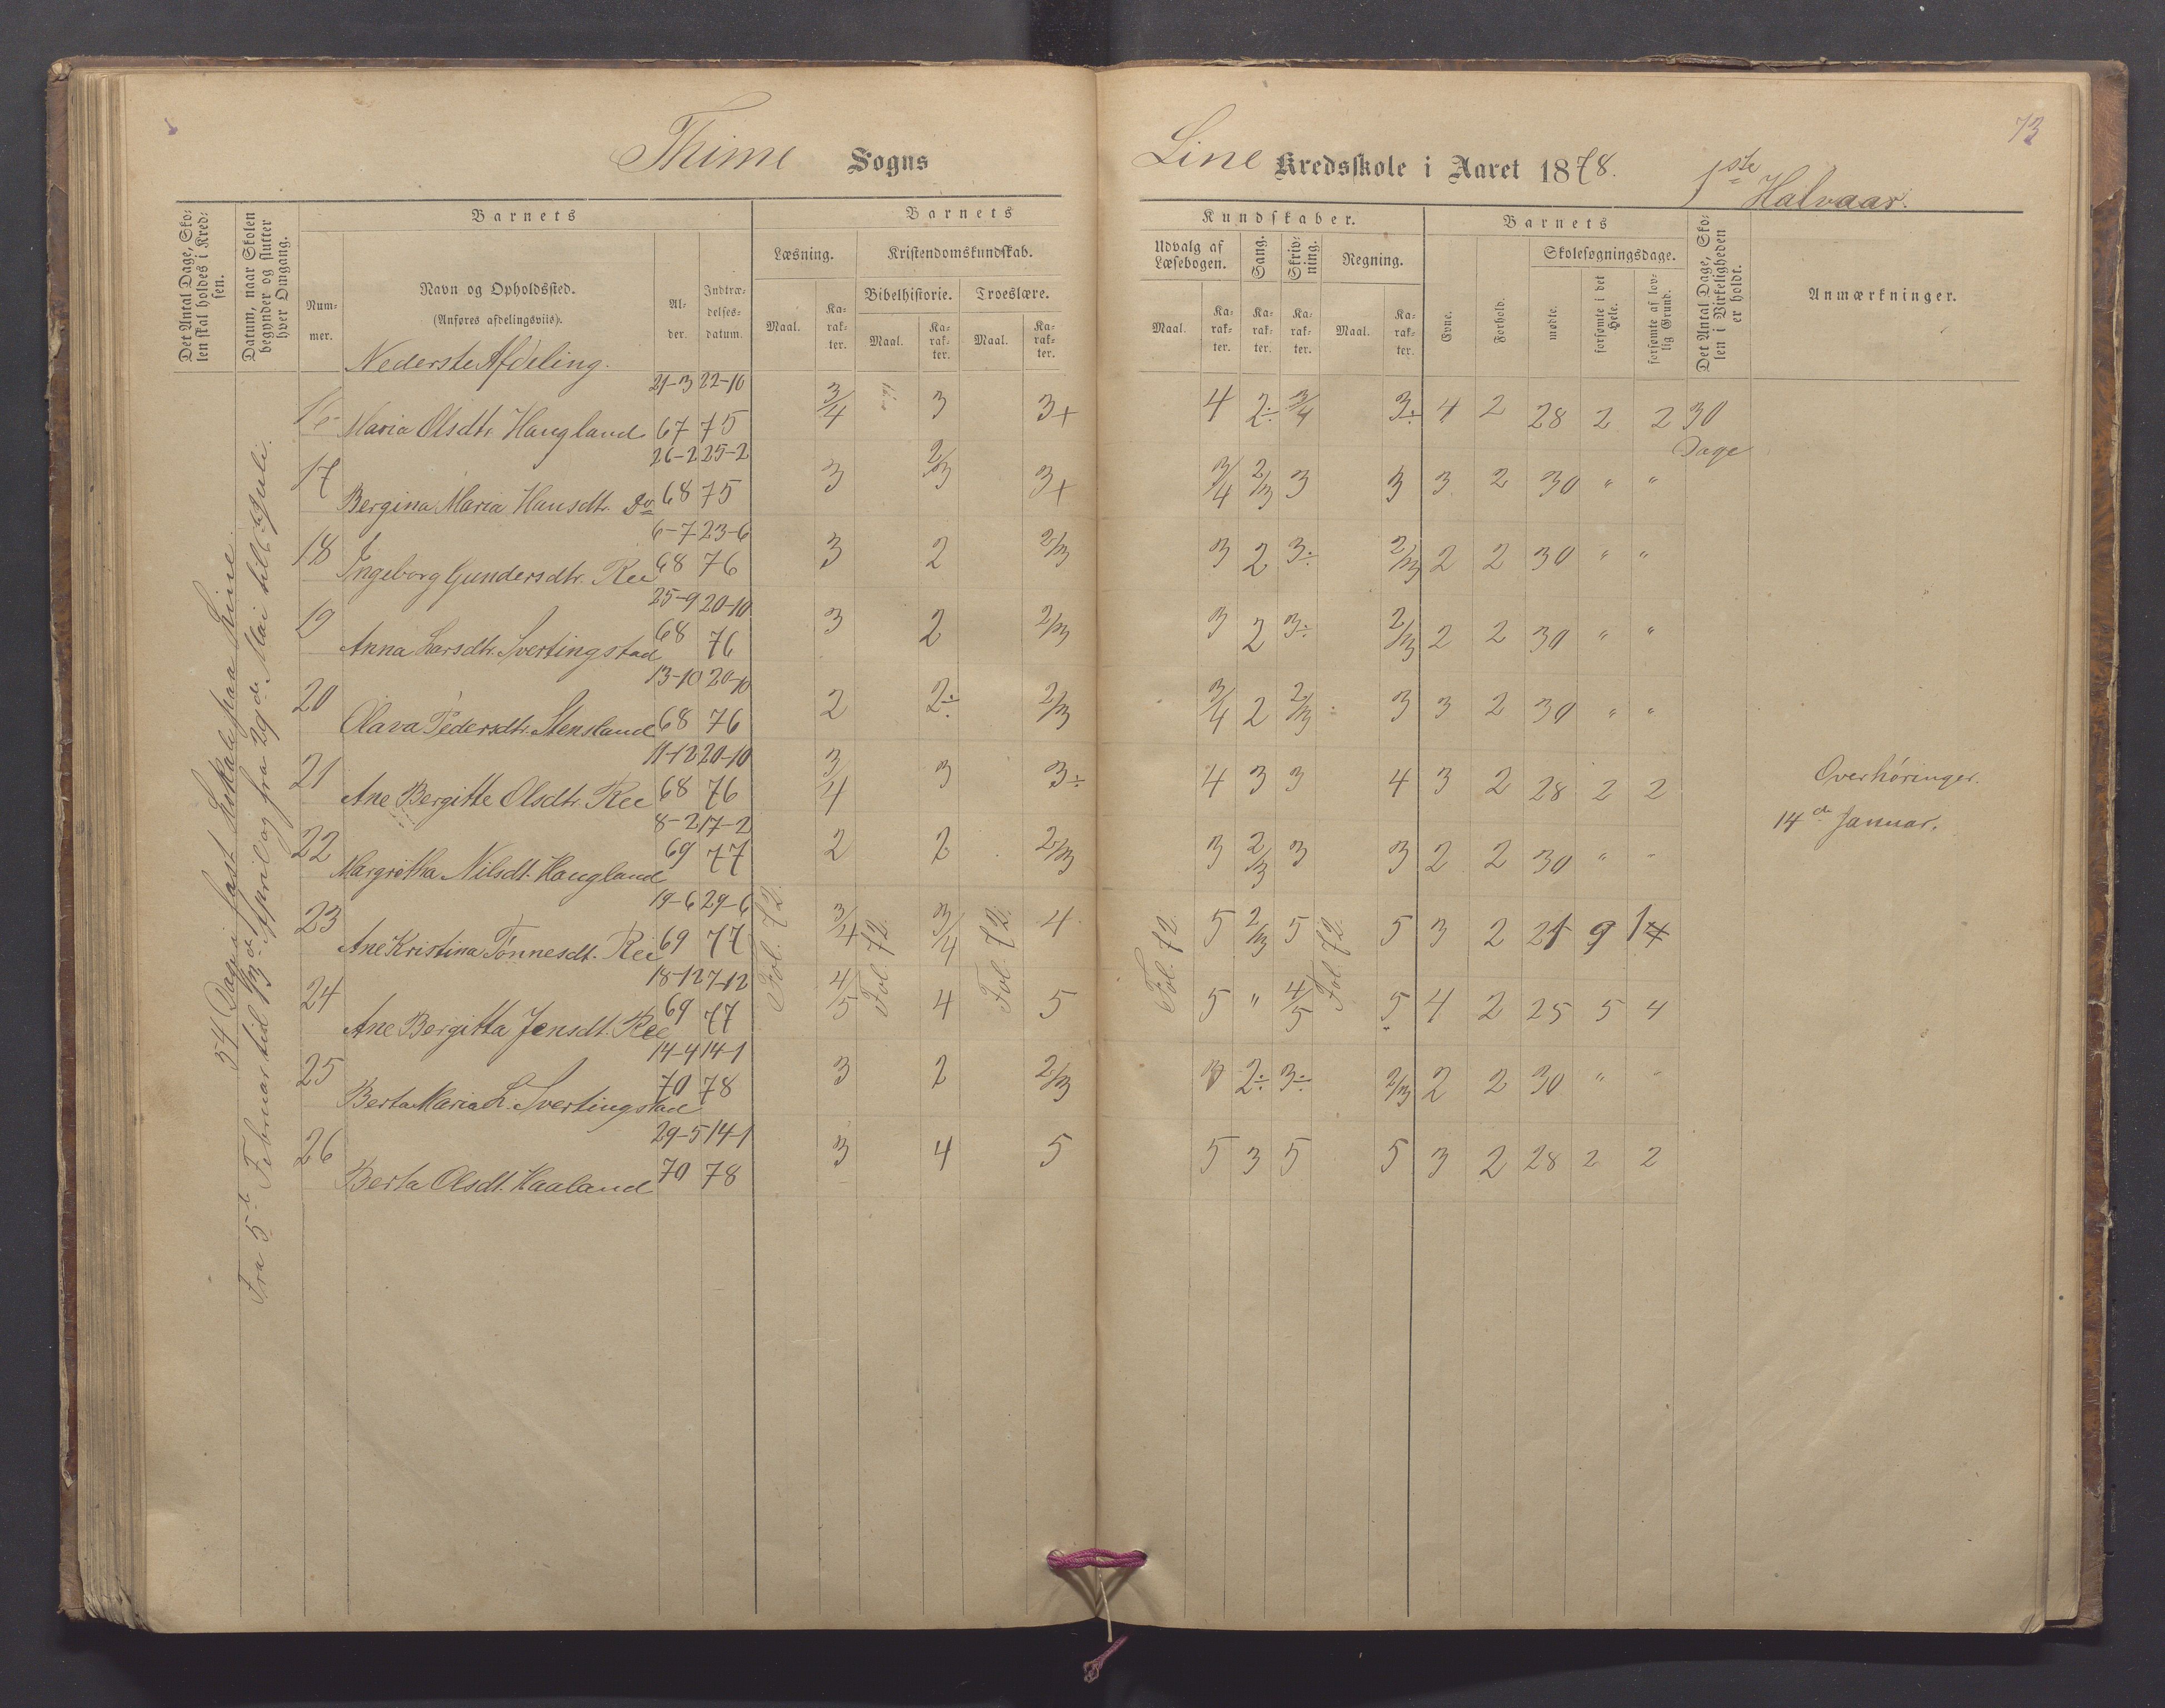 73
Thime Sogns
Line Kredsskole i Aaret 1878. 1ste Halvaar.
Det Antal Dage, Skolen skal holdes i Kredsen.
Datum, naar Skolen begynder og slutter hver Omgang.
Barnets
Nummer.
Navn og Opholdssted.
(Anføres afdelingsviis).
Alder.
Indtrædelsesdatum.
Barnets
Læsning.
Maal.
Karakter.
Kristendomskundskab.
Bibelhistorie.
Maal.
Karakter.
Troeslære.
Maal.
Karakter.
Kundskaber.
Udvalg af Læsebogen.
Maal.
Karakter.
Sang.
Karakter.
Skrivning.
Karakter.
Regning.
Maal.
Karakter.
Barnets
Evne.
Forhold.
Skolesøgningsdage.
mødte.
forsømte i det Hele.
forsømte af lovlig Grund.
Det Antal Dage, Skolen i Virkeligheden er holdt.
Anmærkninger.
Nederste Afdeling.
54 Dage i fast Lokale paa Line.
Fra 5te Februar til 13de April og fra 29de Mai til 6te Juli.
16 Maria Olsdtr. Haugland 21-3 67 22-10 75 3/4 3 3+ 4 2÷ 3/4 3÷ 4 2 28 2 2 30 Dage
17 Bergina Maria Hansdtr. Do 26-2 68 25-2 75 3 2/3 3+ 3/4 2/3 3 3 3 2 30 " "
18 Ingeborg Gundersdtr. Ree 6-7 68 23-6 76 3 2 2/3 3 2 3÷ 2/3 2 2 30 " "
19 Anna Larsdtr. Svertingstad 25-9 68 20-10 76 3 2 2/3 3 2 3÷ 2/3 2 2 30 " "
20 Olava Pedersdtr. Stensland 13-10 68 20-10 76 2 2÷ 2/3 3/4 2 2/3 3 3 2 30 " "
21 Ane Bergitte Olsdtr. Ree 11-12 68 20-10 76 3/4 3 3÷ 4 3 3 4 3 2 28 2 2
22 Margretha Nilsdt. Haugland 8-2 69 17-2 77 2 2 2/3 3 2/3 3 3 2 2 30 " "
23 Ane Kristina Tønnesdt. Ree 19-6 69 29-6 77 3/4 3/4 4 5 2/3 5 5 3 2 21 9 1
24 Ane Bergitta Jensdt. Ree 18-12 69 7-12 77 4/5 4 5 5 " 4/5 5 4 2 25 5 4
25 Berta Maria L. Svertingstad 14-4 70 14-1 78 3 2 2/3 3 2÷ 3÷ 2/3 2 2 30 " "
26 Berta Olsdt. Haaland 29-5 70 14-1 78 3 4 5 5 3 5 5 3 2 28 2 2
Fol. 72.
Fol. 72.
Fol. 72.
Fol. 72.
Fol. 72.
Overhøringer.
14de Januar.